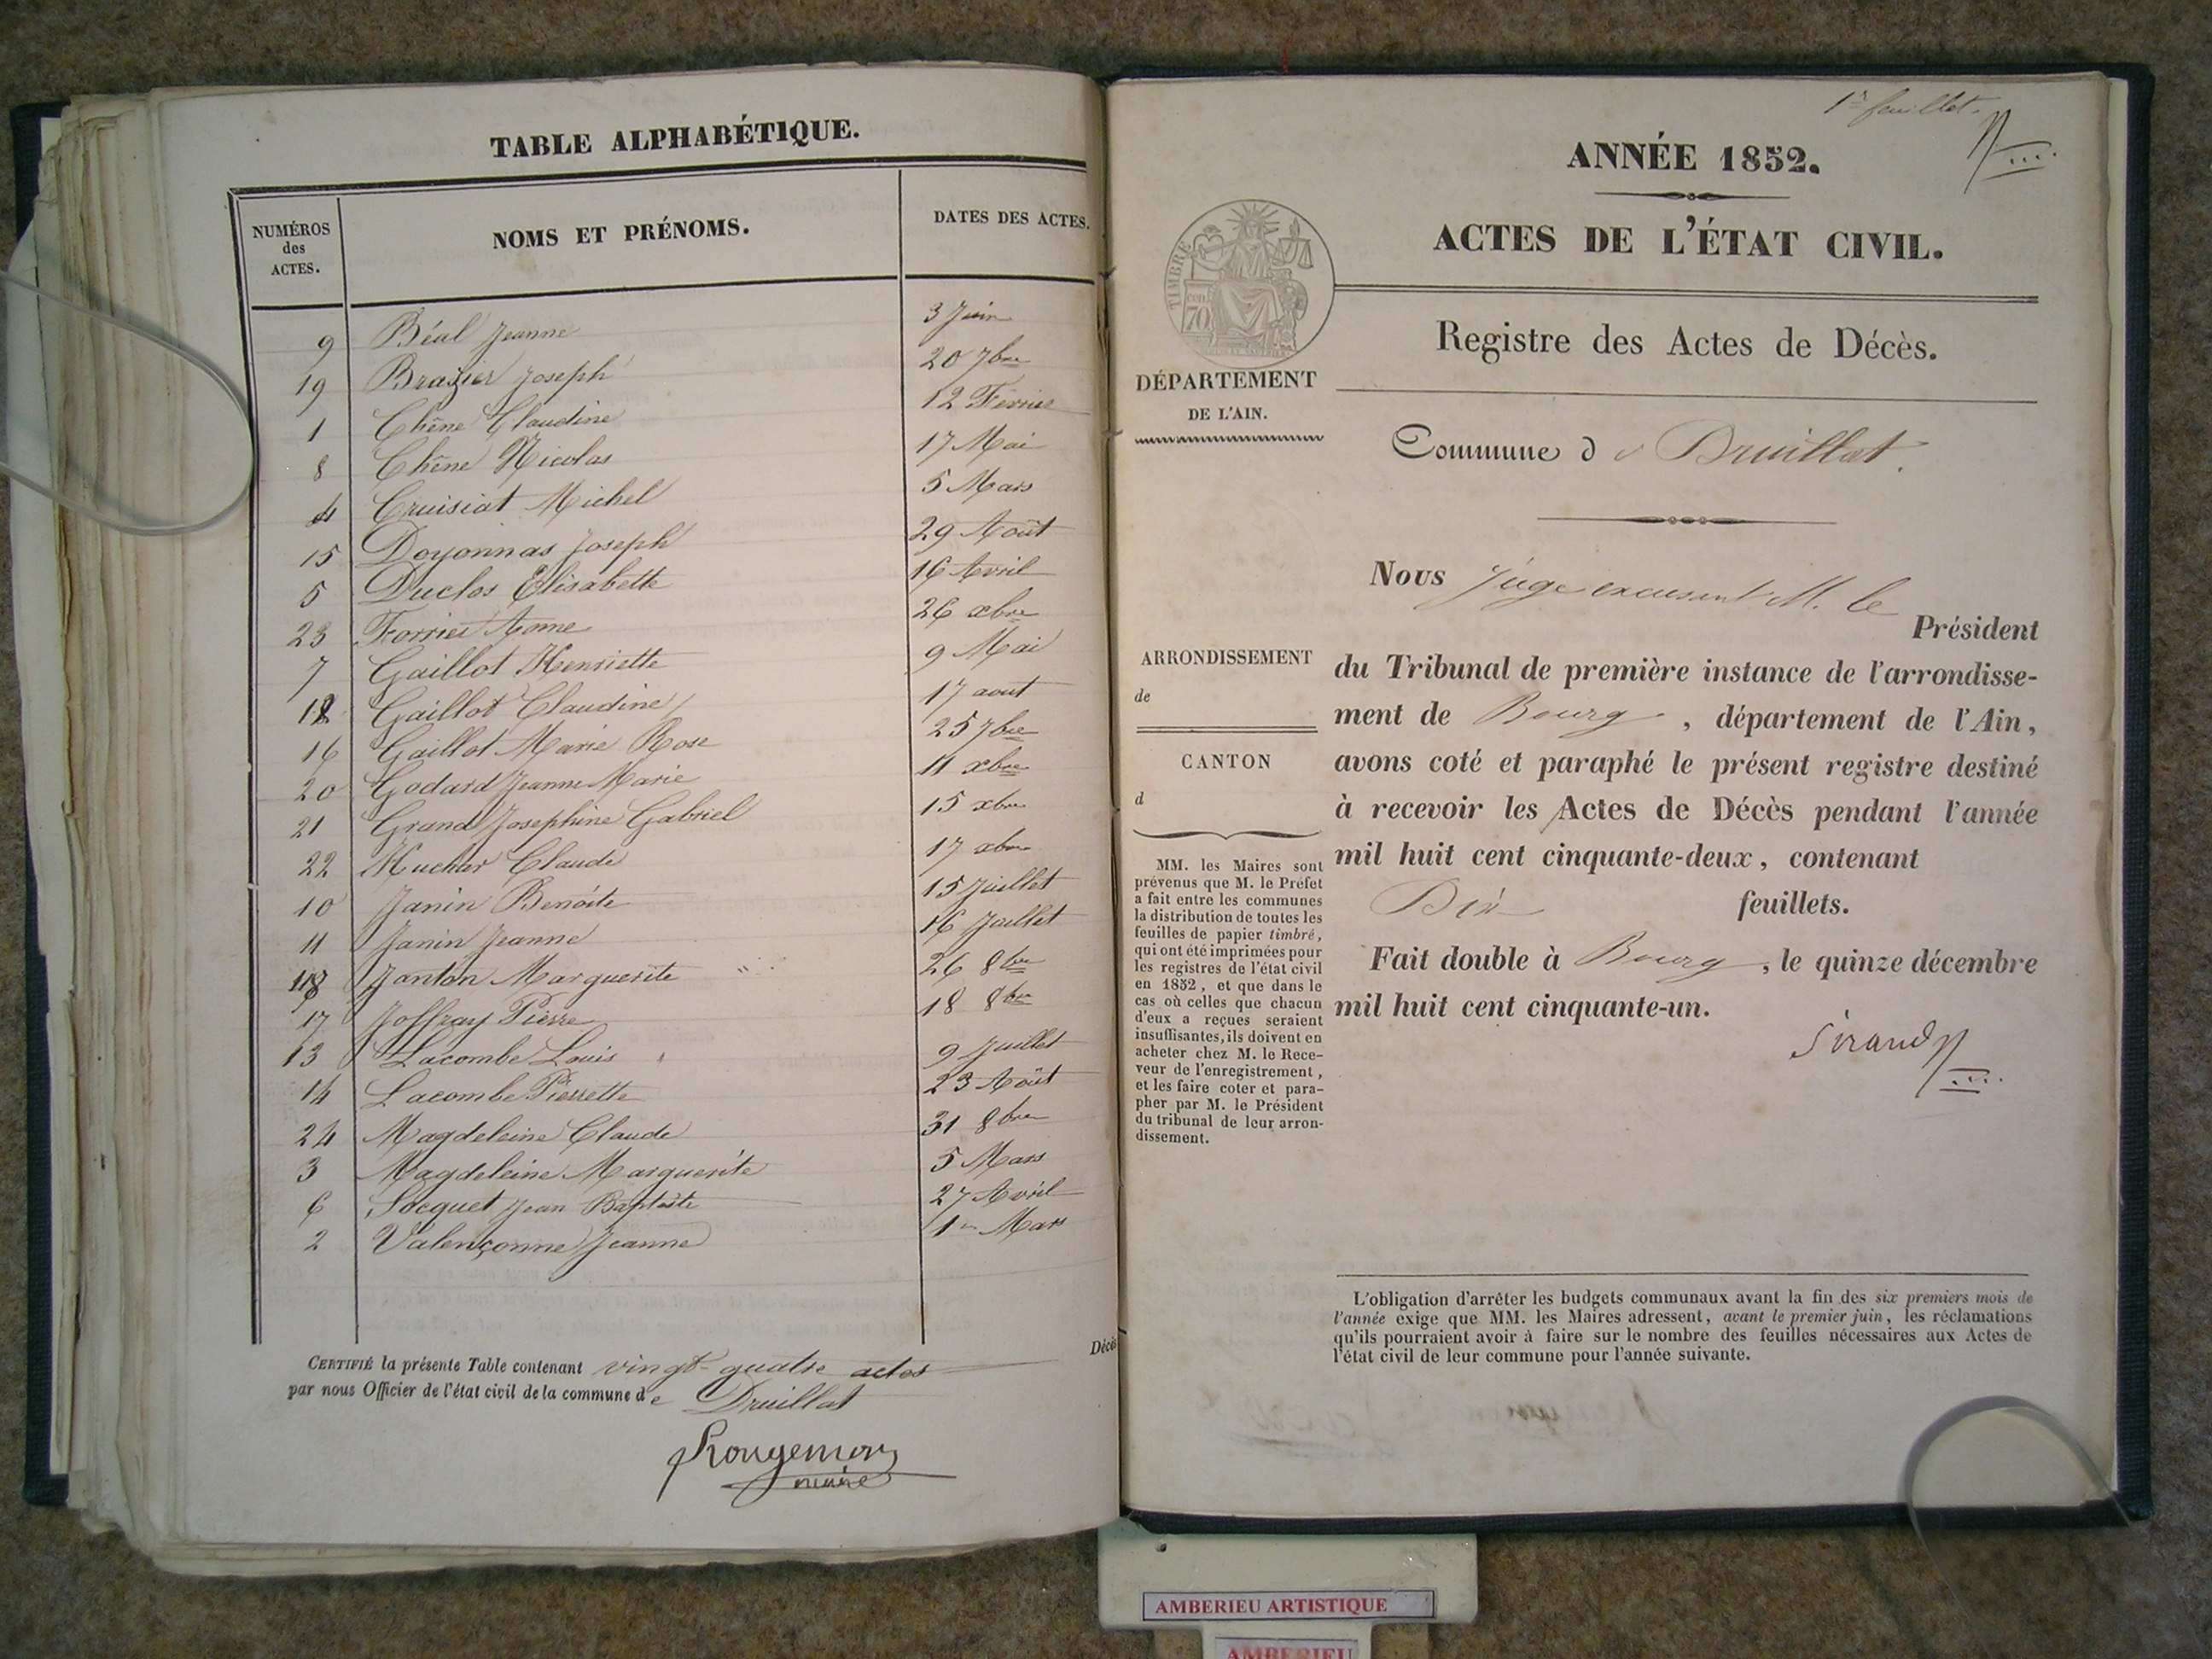 TABLE ALPHABÉTIQUE.
NUMÉROS
des
ACTES.
NOMS ET PRÉNOMS.
DATES DES ACTES.
9 Béal Jeanne 3 Juin
19 Brazier Joseph 20 7bre
1 Chêne Claudine 12 Février
8 Chêne Nicolas 17 Mai
4 Cruisiat Michel 5 Mars
15 Doyonnas Joseph 29 Août
5 Duclos Elisabette 16 Avril
23 Forrier Anne 26 xbre
7 Gaillot Henriette 9 Mai
12 Gaillot Claudine 17 aout
16 Gaillot Marie Rose 25 7bre
20 Godard Jeanne Marie 11 xbre
21 Grand Josephine Gabriel 15 xbre
22 Hucher Claude 17 xbre
10 Janin Benoite 15 Juillet
11 Janin Jeanne 16 Juillet
18 Janton Marguerite 26 8bre
17 Joffray Pierre 18 8bre
13 Lacombe Louis 9 Juillet
14 Lacombe Pierrette 23 Août
24 Magdeleine Claude 31 8bre
3 Magdeleine Marguerite 5 Mars
6 Socquet Jean Baptiste 27 Avril
2 Valençonne Jeanne 1er Mars
Décès
CERTIFIÉ la présente Table contenant vingt-quatre actes
par nous Officier de l'état civil de la commune de Druillat
Rougemon
maire
1er feuillet.
ANNÉE 1852.
ACTES DE L'ÉTAT CIVIL.
Registre des Actes de Décès.
TIMBRE
70
DÉPARTEMENT
DE L'AIN.
Commune de Druillat.
ARRONDISSEMENT
de
CANTON
d
MM. les Maires sont
prévenus que M. le Préfet
a fait entre les communes
la distribution de toutes les
feuilles de papier timbré,
qui ont été imprimées pour
les registres de l'état civil
en 1852, et que dans le
cas où celles que chacun
d'eux a reçues seraient
insuffisantes, ils doivent en
acheter chez M. le Rece-
veur de l'enregistrement,
et les faire coter et para-
pher par M. le Président
du tribunal de leur arron-
dissement.
Nous Juge excusant M. le
Président
du Tribunal de première instance de l'arrondisse-
ment de Bourg, département de l'Ain,
avons coté et paraphé le présent registre destiné
à recevoir les Actes de Décès pendant l'année
mil huit cent cinquante-deux, contenant
Dix feuillets.
Fait double à Bourg, le quinze décembre
mil huit cent cinquante-un.
Sirand
L'obligation d'arrêter les budgets communaux avant la fin des six premiers mois de
l'année exige que MM. les Maires adressent, avant le premier juin, les réclamations
qu'ils pourraient avoir à faire sur le nombre des feuilles nécessaires aux Actes de
l'état civil de leur commune pour l'année suivante.
AMBERIEU ARTISTIQUE
AMBERIEU